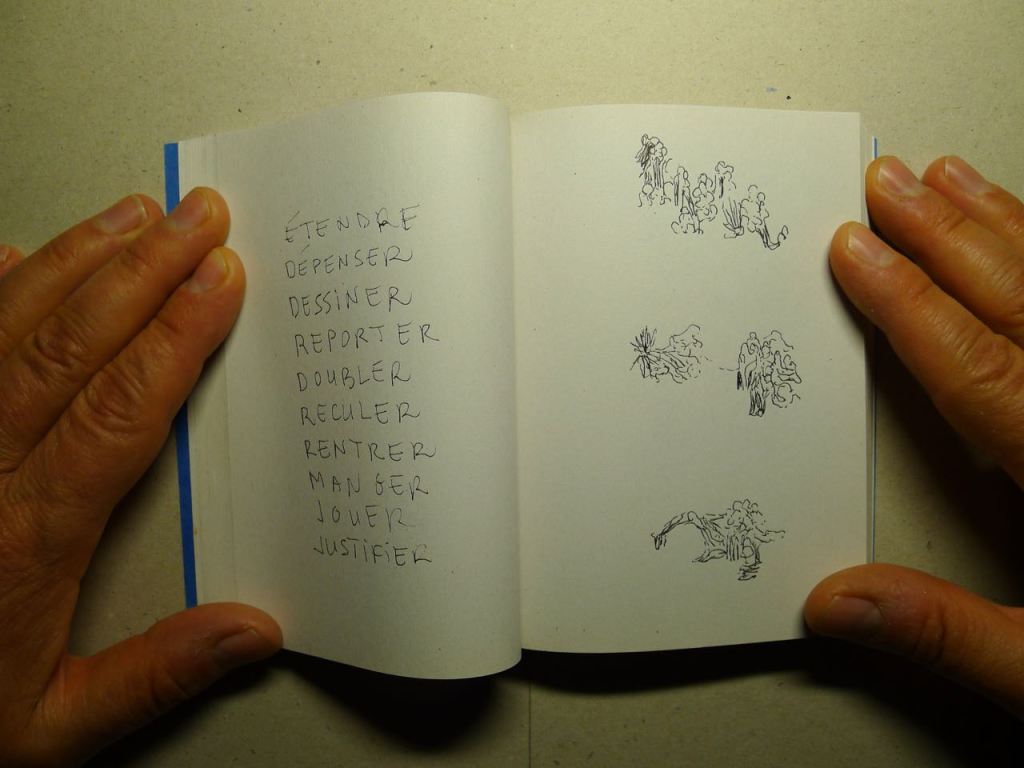 ÉTENDRE
DÉPENSER
DESSINER
REPORTER
DOUBLER
RECULER
RENTRER
MANGER
JOUER
JUSTIFIER